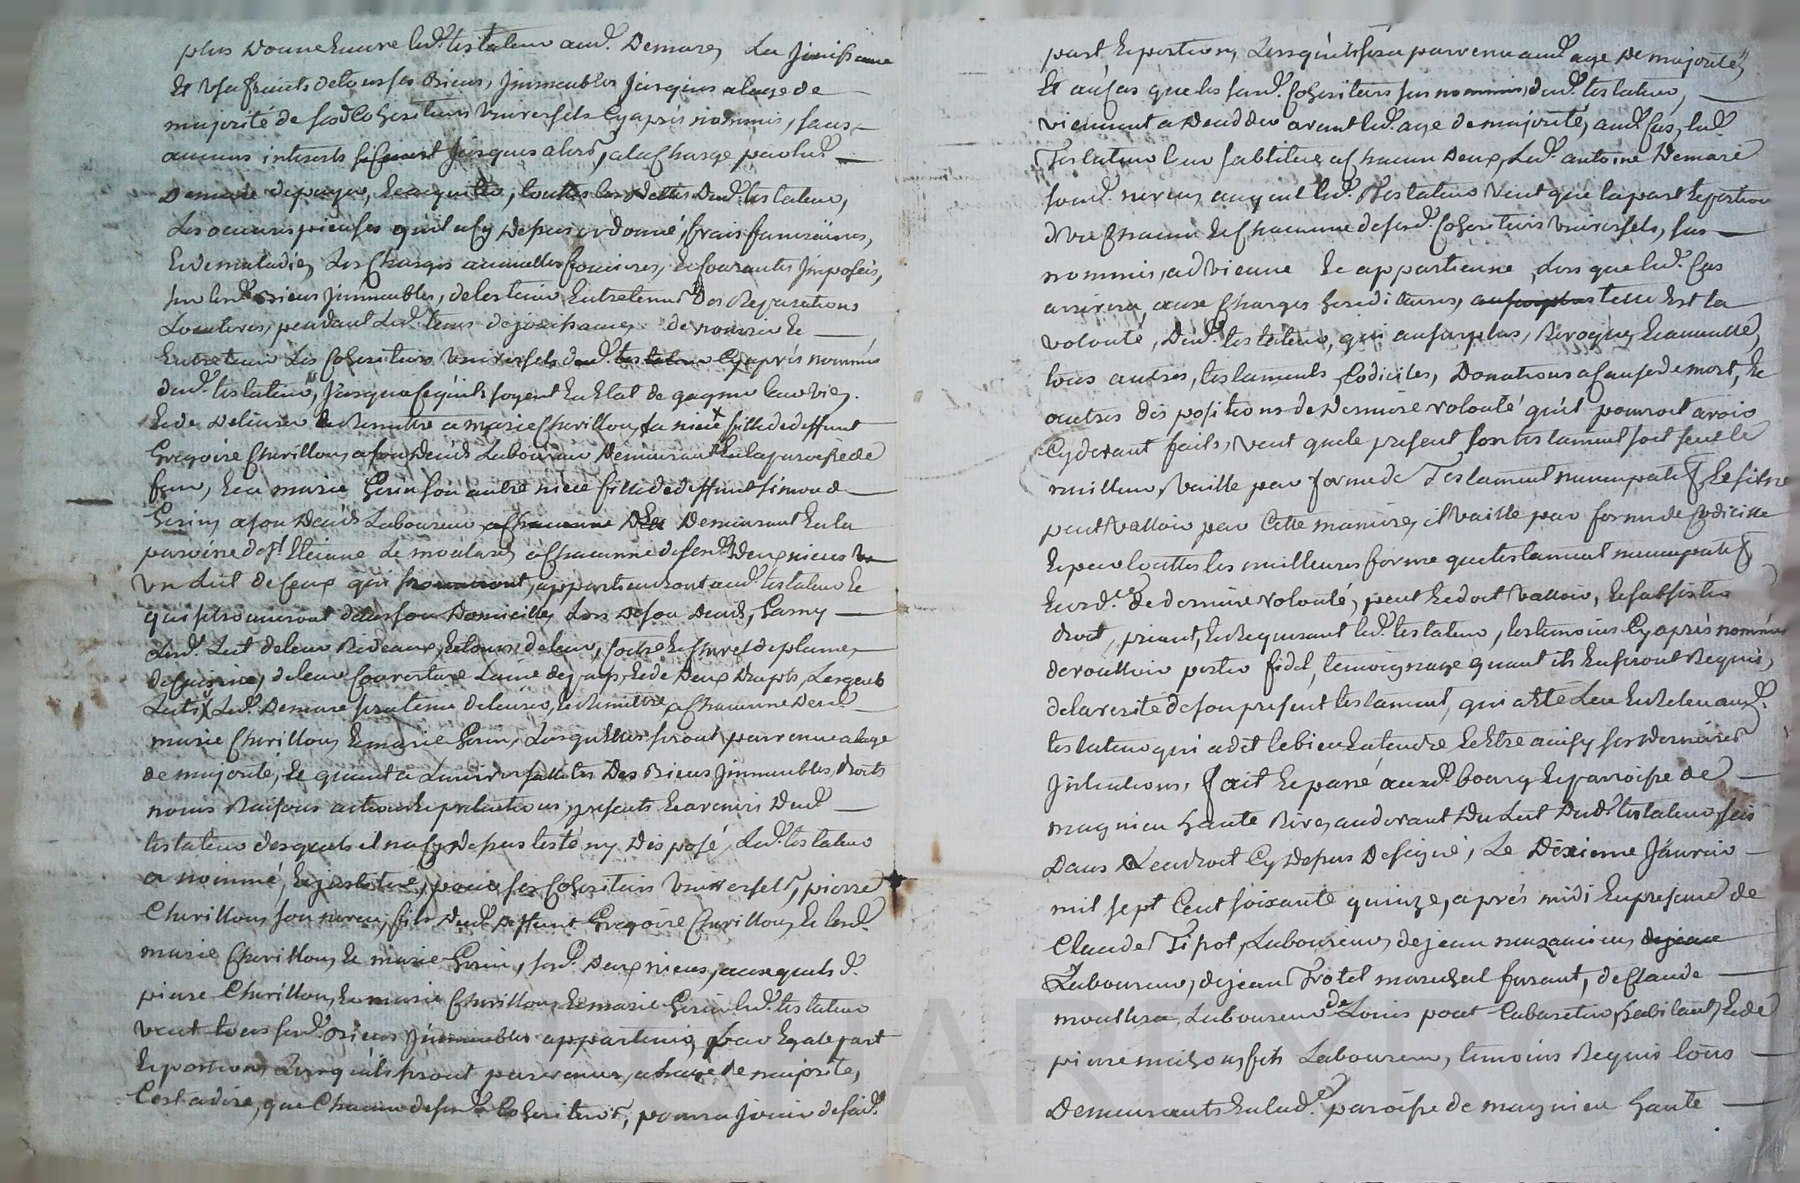 plus donne encore led. testateur aud. Demare, La Jouissance
et usufruits de tous ses Biens, Jmmeubles Jusques alage de
majorité de sesd. Cohéritiers universels Cyaprès nommés, sans
aucuns interets Jusques alors, ala Charge par led.
Demare depayer, et acquitter, touttes les dettes dud. testateur,
Les oeuvres pieuses quil a Cy depus ordonné, frais funéraires,
et de maladie, Les Charges annuelles foncieres, et Courantes Jmposés,
sur lesd. Biens Jmmeubles, de les tenir Entretenus des Reparations
Locatives, pendant Led. tems de jouissance, de nourrir et
Entretenir Les Cohéritiers universels Cyaprès nommés
dud. testateur, Jusqua ce quils soyent En Etat de gagner leur vie,
Et de delivrer et Remettre a marie Chevillon, sa niece fille de deffunt
Gregoire Chevillon, a son Deces Laboureur Demeurant En la paroisse de
et a marie Gerin son autre niece fille de deffunt Simond
Gerin, a son Decés Laboureur Demeurant En la
paroisse de St Etienne Le molard, a Chacune de sesd. Deux nieces
un Lit de Ceux qui appartiendront aud. testateur et
qui se trouveront dans son Domicille, Lors de son Deces, Garny
Lesd. Lit de leur Rideaux, et tours de leur, et Chevet de plume,
de leur Couverture Laine et de Deux Draps, Lesquels
Lits Led. Demare sera tenu delivrer, et Remettre, a Chacune Desd.
marie Chevillon, et marie Gerin, Lorsquelles seront parvenue alage
de majorité, et quant a Luniversallités Des Biens Jmmeubles, droits
noms Raisons actions et pretentions, presents et avenirs Dud.
testateur desquels il na Cy depus testé ny Disposé, Led. testateur
a nommé, et Jnstitué, pour ses Cohéritiers universels, pierre
Chevillon, son neveu, fils Dud. deffunt Gregoire Chevillon, et lesd.
marie Chevillon, et marie Gerin, sesd. Deux nieces, auxquels d.
pierre Chevillon, et marie Chevillon, et marie Gerin led. testateur
veut tous sesd. Biens Jmmeubles appartenir, par Egale part
et portion, Lorsquils seront parvenus, a l'age de majorité,
Cest adire, que Chacun de sesd. Cohéritiers, pourra Jouir de sad.
part, et portion, Lorsquil sera parvenu aud. age de majorité,
Et au Cas que les susd. Cohéritiers sus nommés, dud. testateur,
viennent a Deceder avant led. age de majorité, aud. Cas, led.
Testateur leur substitue, a Chacun Deux, Led. antoine Demare
sond. neveu, auquel led. Testateur veut que la part et portion
d'un Chacun et Chacunne de sesd. Cohéritiers universels, sus
nommés, advienne et appartienne, Lorsque led. Cas
arrivera, aux Charges hereditaires, telle Est la
volonté, Dud. testateur, qui au surplus, Revoque, et annulle,
tous autres, testaments, Codiciles, Donations a Cause de mort, et
autres dispositions de Derniere volonté quil pourroit avoir
Cydevant faits, veut que le present son testament soit seul le
meilleur, vaille par forme de Testament nuncupatif, Et si ne
peut valloir par Cette maniere, il vaille par forme de Codicille
Et par touttes les meilleures forme que testament nuncupatif
de derniere volonté, peut et doit valloir, et subsister
droit, priant, et Requerant led. testateur, les temoins Cyaprés nommés
de voulloir porter fidel, temoignage quant ils En seront Requis,
de la verité de son present testament, qui a Eté Leu et Releu aud.
testateur qui a dit le bien Entendre et Etre ainsy ses dernieres
Jntentions, fait et passé auxd. bourg et paroisse de
magnieu hauteRive, au devant Du Lit Dud. testateur, sis
Dans L'endroit Cy Depus Designé, Le Dixieme Janvier
mil sept Cent soixante quinze, aprés midi En presence de
Claude Tipot, Laboureur, de jean
Laboureur, de jean Trotet marechal ferant, de Claude
Laboureur de Louis poat Cabaretier, habitant, et de
pierre fils Laboureur, temoins Requis tous
Demeurants En lad. paroisse de magnieu haute